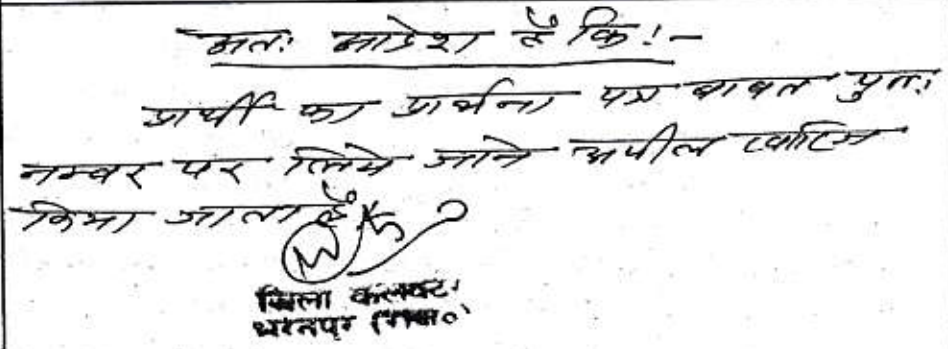 अतः आदेश है कि!-
प्रार्थी का प्रार्थना पत्र बाबत पुनः
नम्बर पर लिये जाने अपील खारिज
किया जाता है
जिला कलक्टर
भरतपुर (राज०)